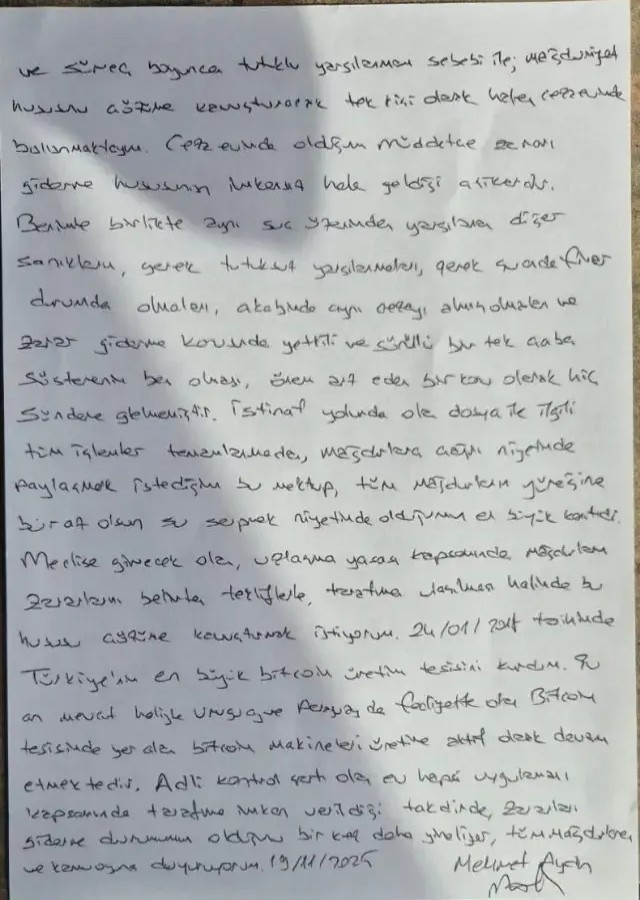 ve süreç boyunca tutuklu yargılanmam sebebi ile; mağduriyet
hususunu çözüme kavuşturacak tek kişi olarak halen cezaevinde
bulunmaktayım. Cezaevinde olduğum müddetçe zararı
giderme hususunun imkansız hale geldiği aşikardır.
Benimle birlikte aynı suç üzerinden yargılanan diğer
sanıkların, gerek tutuksuz yargılanmaları, gerek şu anda firar
durumda olmaları, akabinde aynı cezayı almış olmaları ve
zarar giderme konusunda yetkili ve sürekli bir tek çaba
gösterenin ben olması, önem arz eden bir konu olarak hiç
gündeme gelmemiştir. İstinaf yolunda olan dosya ile ilgili
tüm işlemler tamamlanmadan, mağdurlara çağrı niyetinde
paylaşmak istediğim bu mektup, tüm mağdurların yüreğine
biraz olsun su serpmek niyetinde olduğumun en büyük kanıtıdır.
Meclise girecek olan, uzlaşma yasası kapsamında mağdurların
zararlarını belirten tekliflerle, tarafıma ulaşılması halinde bu
hususu çözüme kavuşturmak istiyorum. 24/01/2018 tarihinde
Türkiye'nin en büyük bitcoin üretim tesisini kurdum. Şu
an mevcut haliyle Uruguay ve Paraguay da faaliyette olan Bitcoin
tesisinde yer alan bitcoin makineleri üretime aktif olarak devam
etmektedir. Adli kontrol şartı olan ev hapsi uygulaması
kapsamında tarafıma imkan verildiği takdirde, zararları
giderme durumunun olduğunu bir kez daha yineliyor, tüm mağdurlara
ve kamuoyuna duyuruyorum. 19/11/2025 Mehmet Aydın